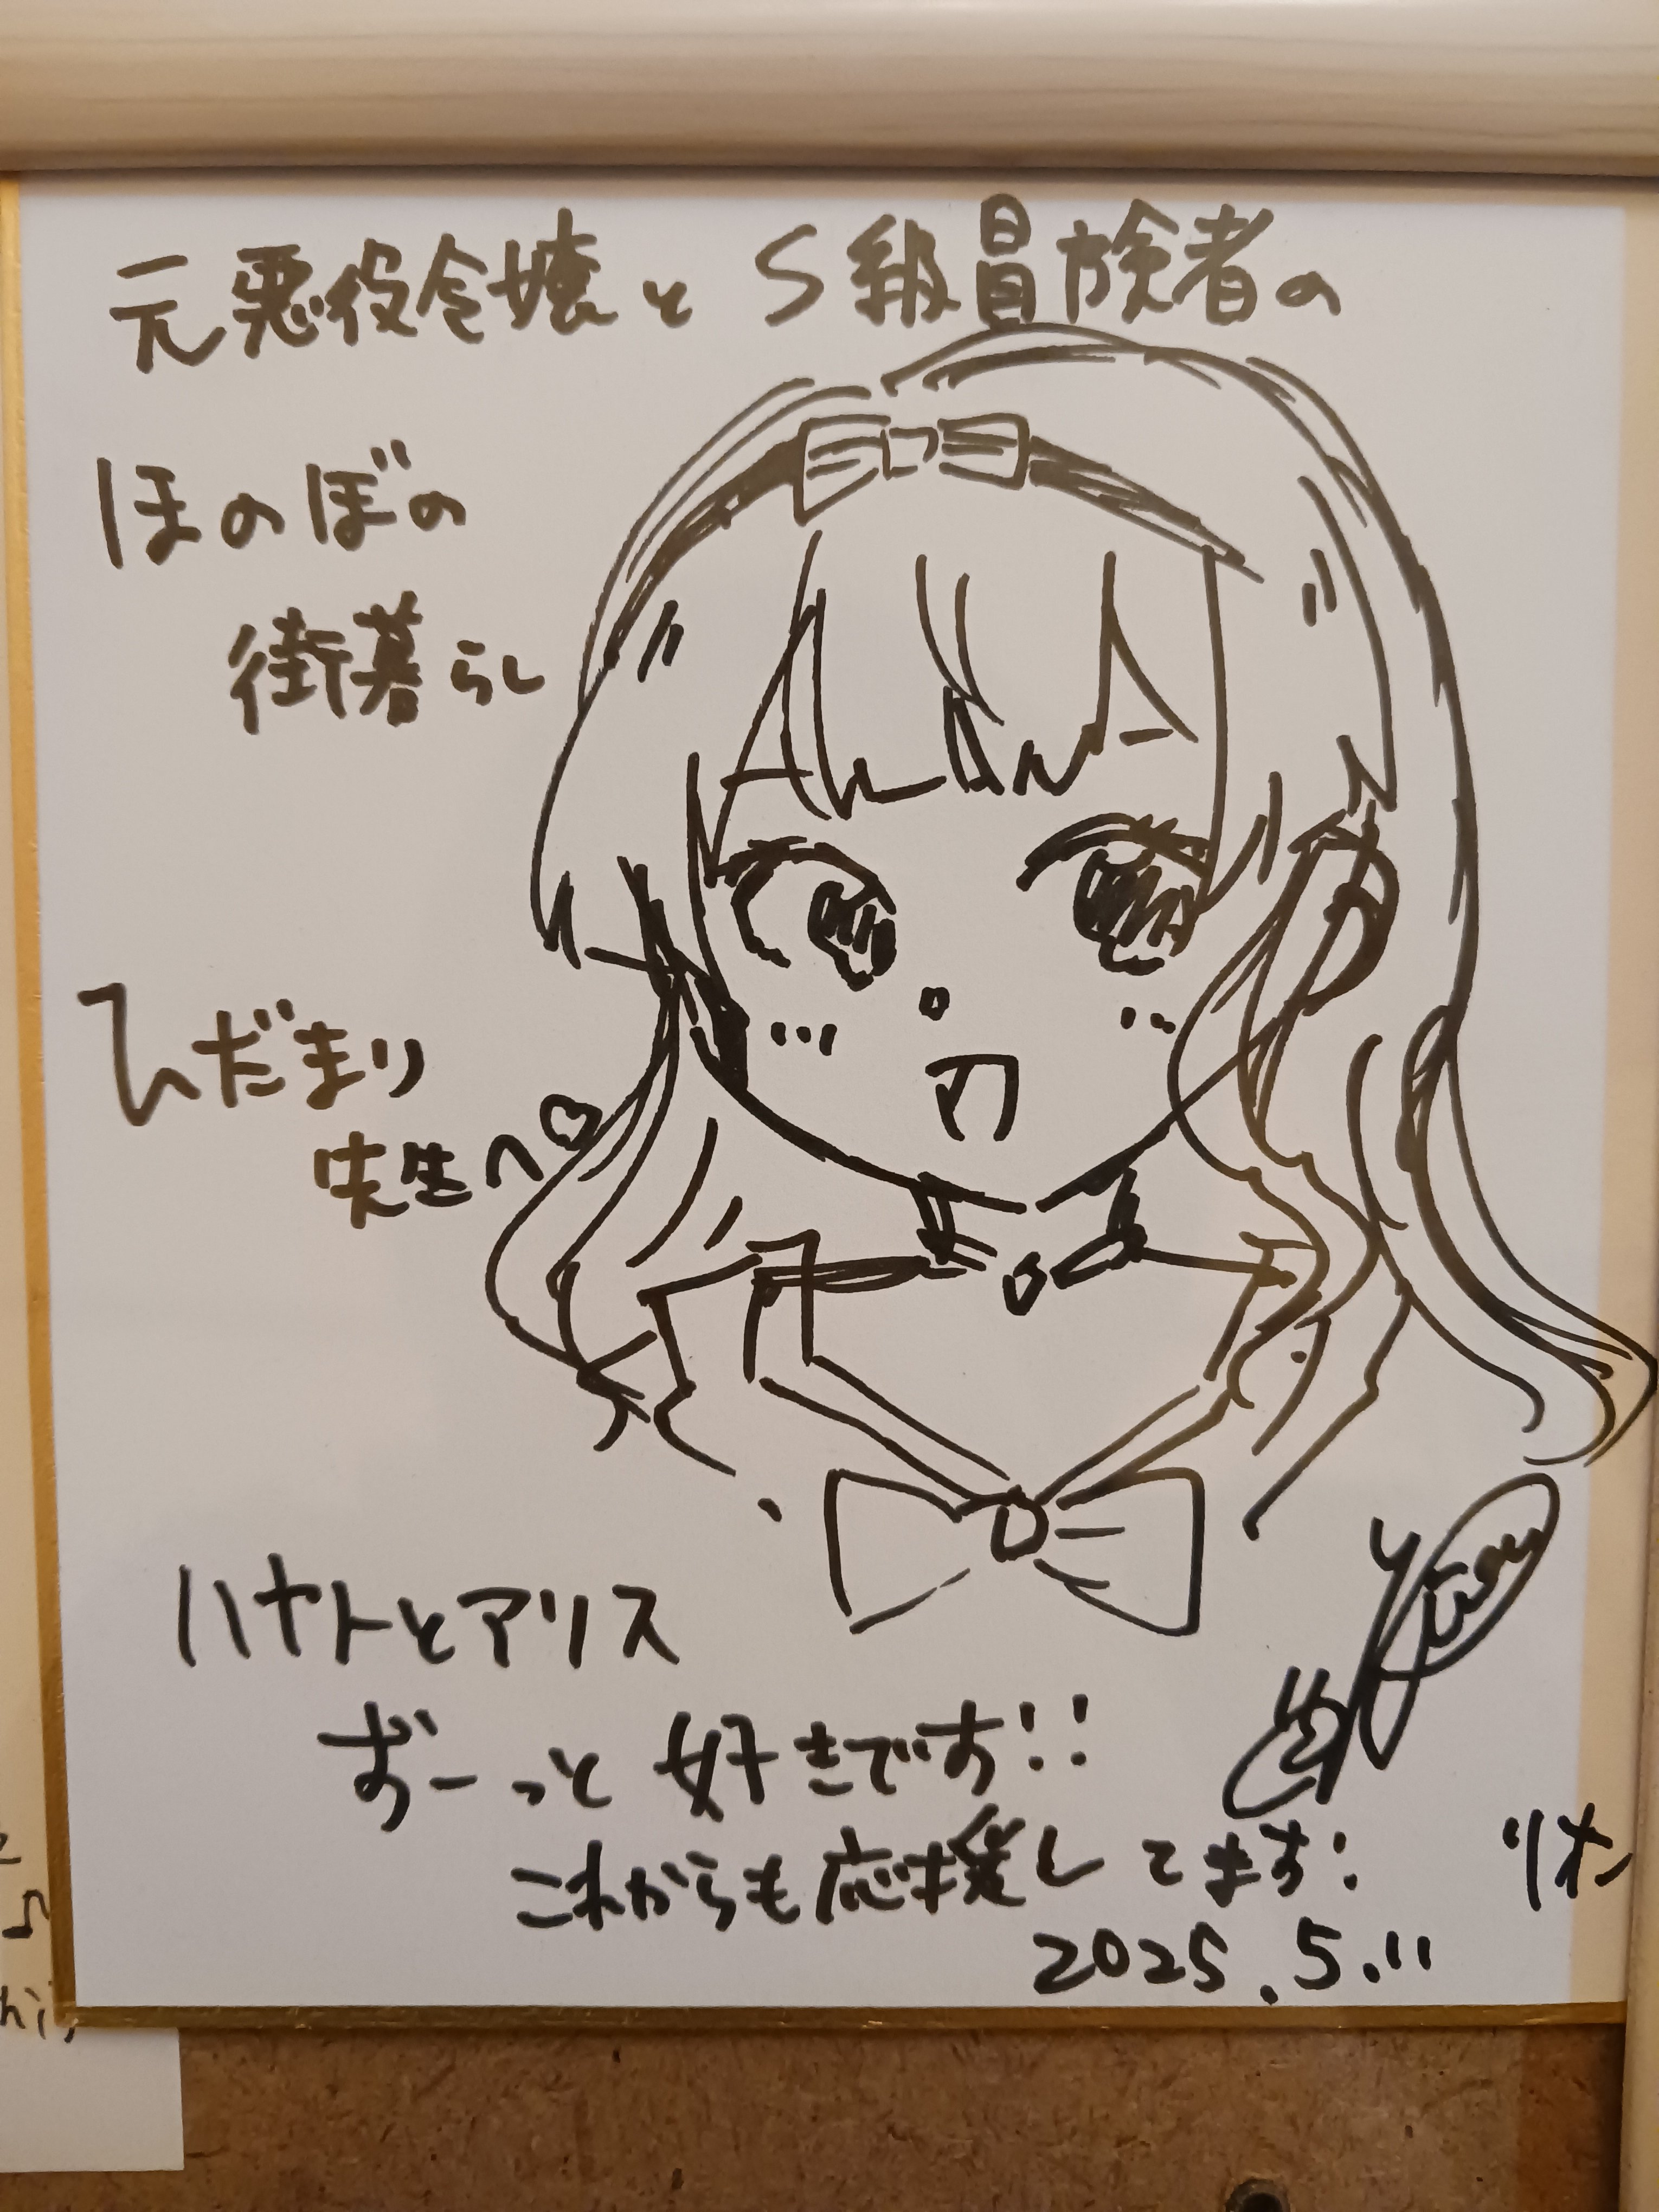 元悪役令嬢とS級冒険者の
ほのぼの
街暮らし
ひだまり
先生へ♡
ハヤトとアリス
ずーっと好きです!!
これからも応援してます!
リオン
2025.5.11